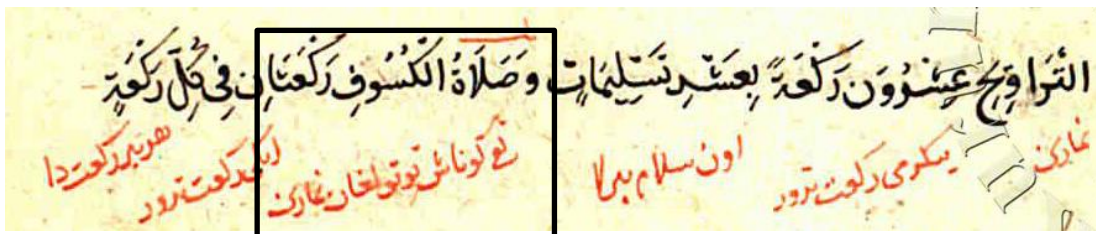 التَّرَاوِيحِ عِشْرُونَ رَكْعَةً بِعَشْرِ تَسْلِيمَاتٍ وَصَلَاةُ الْكُسُوفِ رَكْعَتَانِ فِي كُلِّ رَكْعَةٍ
نمازى يىكرمى ركعت ترور اون سلام بيرلا تقى كوناش توتولغان نمازى ايكى ركعت ترور هر بير ركعت دا